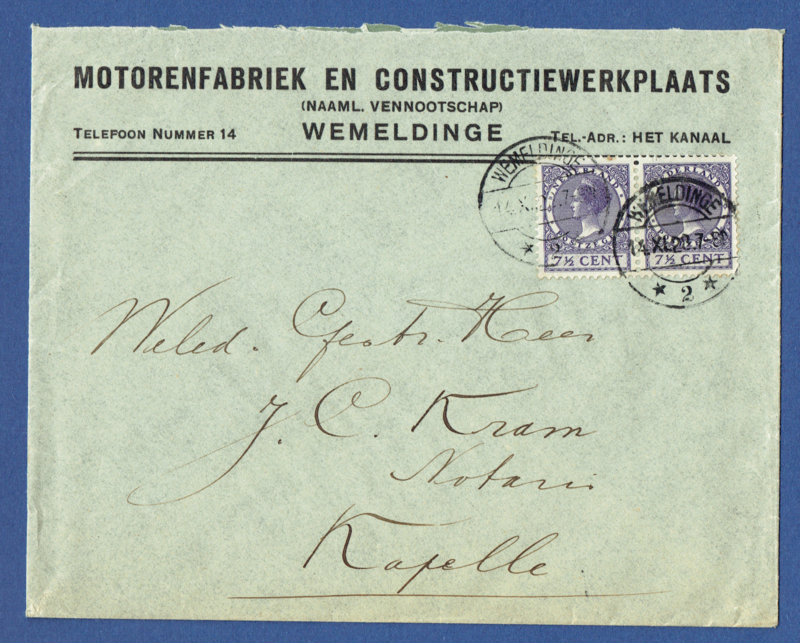 MOTORENFABRIEK EN CONSTRUCTIEWERKPLAATS
(NAAML. VENNOOTSCHAP)
TELEFOON NUMMER 14 WEMELDINGE TEL.-ADR.: HET KANAAL
WEMELDINGE
2
NEDERLAND
7½ CENT
WEMELDINGE
14.XI.2 7-8N
2
NEDERLAND
7½ CENT
Weled. Gestr. Heer
J. C. Kram
Notaris
Kapelle